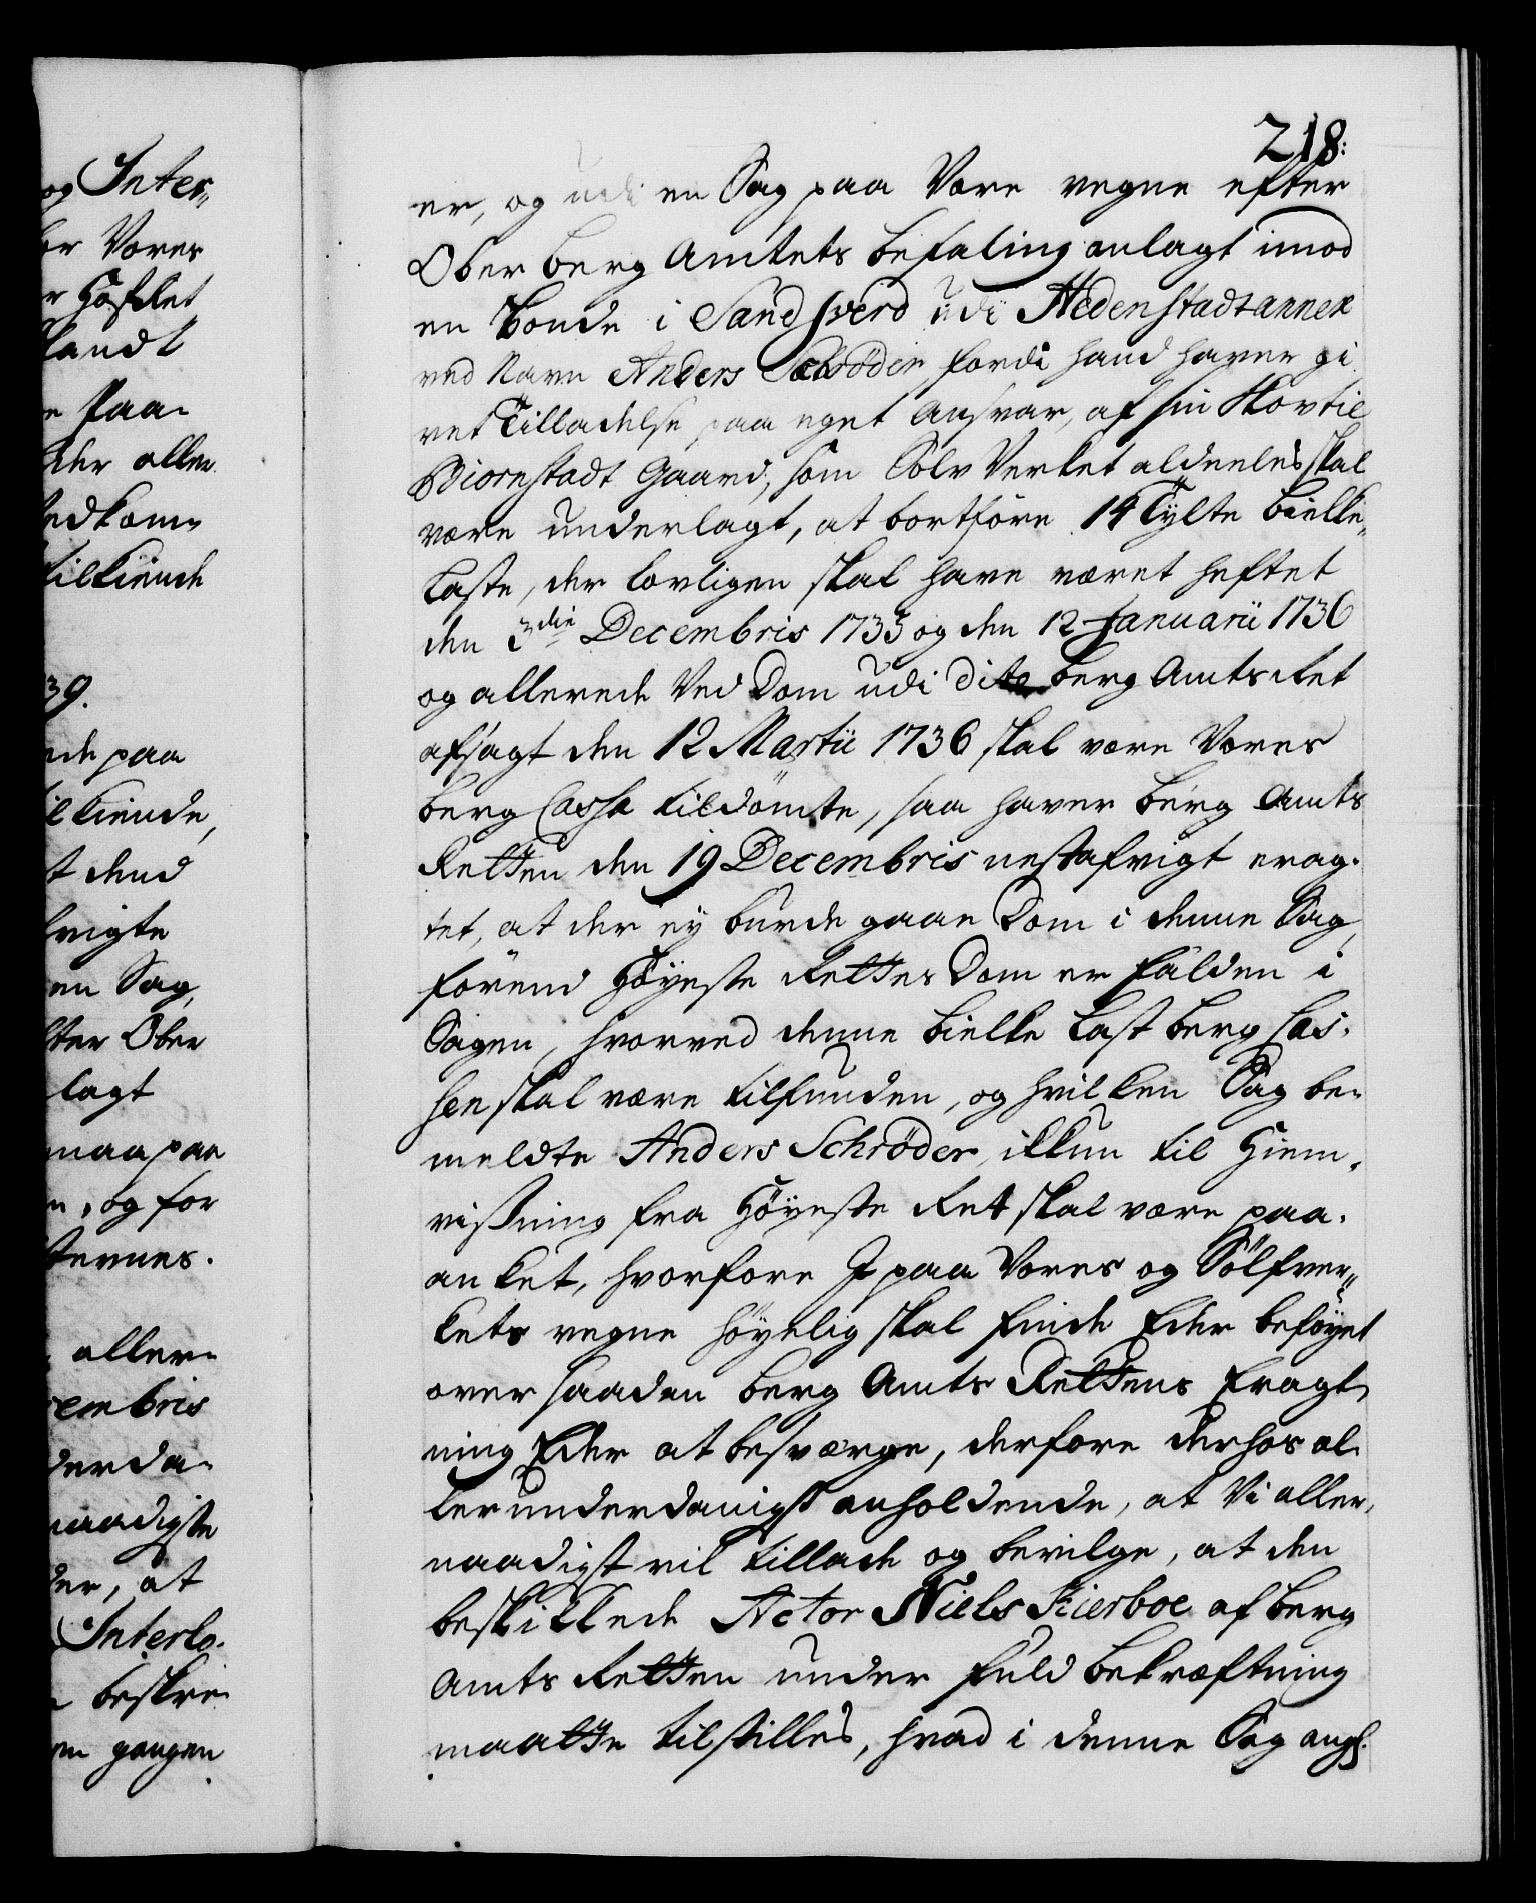 og Inter„
or Vores
r Hoffet
landt
e Paa-
der aller
edkom-
tilkiende
39.
nde paa
ilkiende,
t dend
frigte
en Sag,
fter Ober
lagt
maa paa
n, og for
ternes.
aller-
cembris
derda-
naadigste
der, at
Interlo-
beskre-
en gangen
218:
er, og udi en Sag paa Vore vegne efter
Ober berg Amtets befaling anlagt imod
en Bonde i Sandsverd udi Hedenstadtannex
ved Navn Anders Schröder, fordi hand haver gi
vet Tilladelse paa eget Ansvar, af sin Skov til
Biornstadt Gaard, som Sölv Verket aldeeles skal
være underlagt, at bortföre 14 Tylte bielke„
Laste, der lovligen skal have været heftet
den 3die Decembris 1735 og den 12 Januarii 1736
og allerede Ved Dom udi dito berg Amts Ret
afsagt den 12 Martii 1736 skal være Vores
berg Cassa tildömte, saa haver berg Amts
Retten den 19 Decembris nestafvigt erag-
tet, at der ey burde gaae Dom i denne Sag,
förend Höyeste Rettes Dom er falden i
Sagen, hvorved denne bielke Last berg Cas-
sen skal være tilfunden, og hvilken Sag be-
meldte Anders Schröder, ikkun til Hiem-
viisning fra Höyeste Ret skal være paa-
anket, hvorfore I paa Vores og Sölfver„
kets vegne höyelig skal finde Eder beföyet
over saadan berg Amts Rettens Eragt-
ning Eder at besværge, derfore derhos al-
lerunderdanigst anholdende, at Vi aller-
naadigst vil tillade og bevilge, at den
beskikkede Actor Niels Kierboe af berg
Amts Retten under fuld bekræftning
maatte tilstilles, hvad i denne Sag angl.